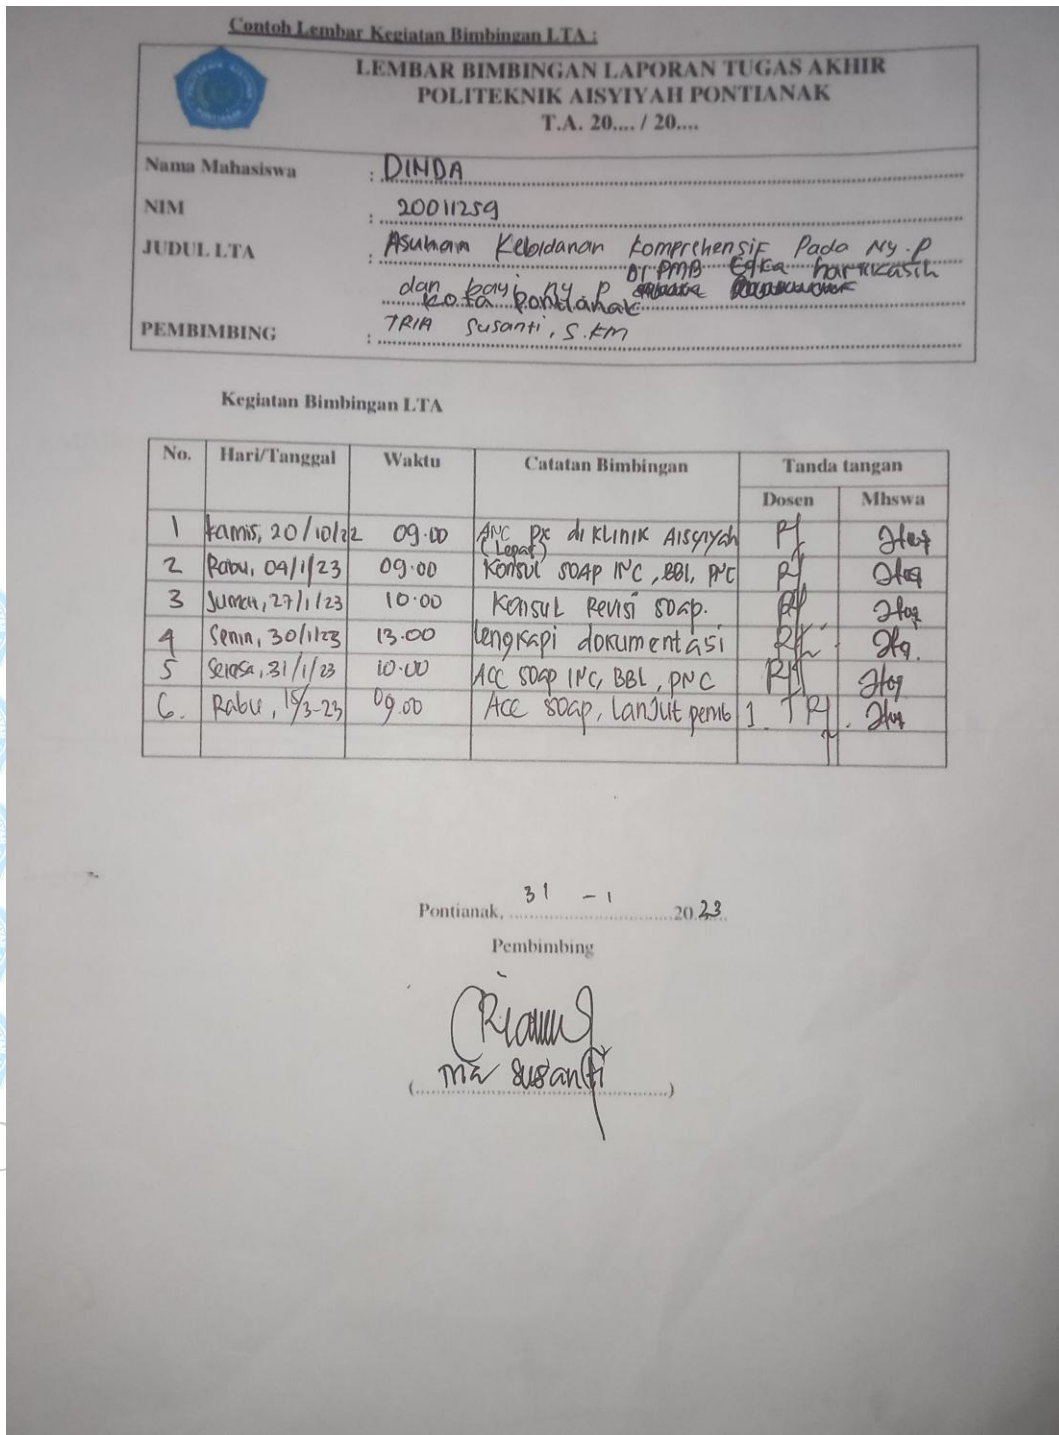 Contoh Lembar Kegiatan Bimbingan LTA :
LEMBAR BIMBINGAN LAPORAN TUGAS AKHIR
POLITEKNIK AISYIYAH PONTIANAK
T.A. 20.... / 20....
Nama Mahasiswa : DINDA
NIM : 20011259
JUDUL LTA : Asuhan Kebidanan Komprehensif Pada Ny. P
dan bayi ny P Di PMB Eqka hartikasih
kota pontianak
PEMBIMBING : TRIA Susanti, S.KM
Kegiatan Bimbingan LTA
No. Hari/Tanggal Waktu Catatan Bimbingan Tanda tangan
Dosen Mhswa
1 Kamis, 20/10/22 09.00 ANC PK di KLINIK Aisyiyah
(Lepas)
2 Rabu, 04/1/23 09.00 Konsul SOAP INC, BBL, PNC
3 Jumat, 27/1/23 10.00 Konsul Revisi soap.
4 Senin, 30/1/23 13.00 lengkapi dokumentasi
5 Selasa, 31/1/23 10.00 ACC SOAP INC, BBL, PNC
6. Rabu, 15/3-23 09.00 Acc soap, Lanjut pemb 1.
Pontianak, 31 - 1 2023
Pembimbing
(Tria Susanti)